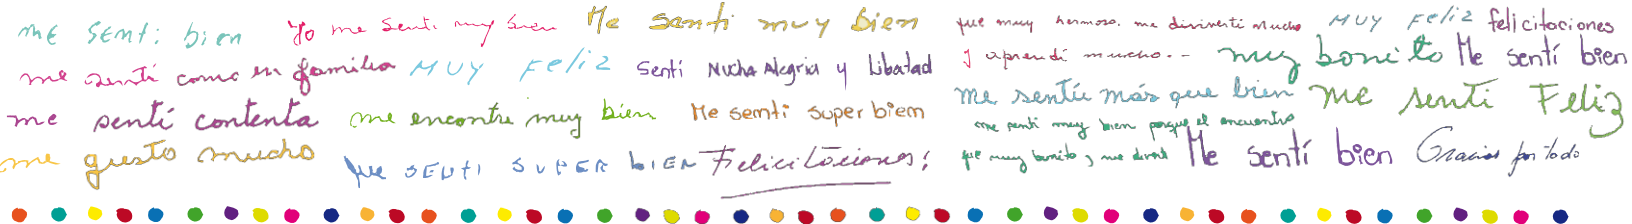 me sentí bien
Yo me sentí muy bien
Me sentí muy bien
fue muy hermoso. me diviertí mucho
y aprendí mucho..
MUY FeliZ
felicitaciones
me sentí como en familia
MUY FeliZ
Sentí Mucha Alegria y Libertad
muy bonito
Me sentí bien
me sentí contenta
me encontre muy bien
Me semti super biem
me sentíi más que bien
me senti Feliz
me senti muy bien porque el encuentro
fue muy bonito, me
me gusto mucho
SENTI SUPER bIEN
Felicitaciones!
Me sentí bien
Gracias por todo